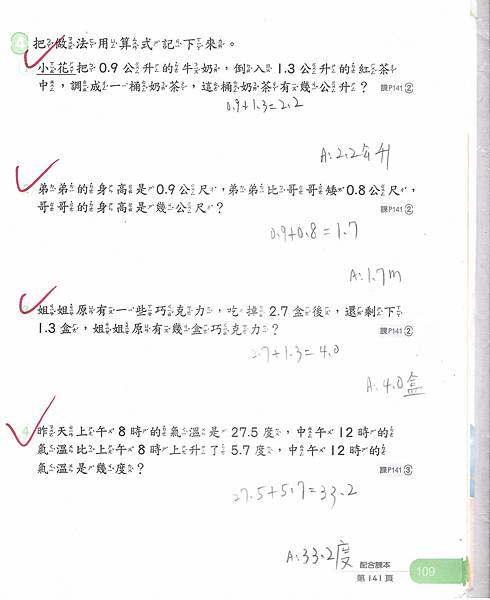 4 把做法用算式記下來。
小花把 0.9 公升的牛奶,倒入 1.3 公升的紅茶
中,調成一桶奶茶,這桶奶茶有幾公升? 課P141 ②
0.9+1.3=2.2
A:2.2公升
弟弟的身高是 0.9 公尺,弟弟比哥哥矮 0.8 公尺,
哥哥的身高是幾公尺? 課P141 ②
0.9+0.8=1.7
A:1.7m
姐姐原有一些巧克力,吃掉 2.7 盒後,還剩下
1.3 盒,姐姐原有幾盒巧克力? 課P141 ②
2.7+1.3=4.0
A:4.0盒
4 昨天上午 8 時的氣溫是 27.5 度,中午 12 時的
氣溫比上午 8 時上升了 5.7 度,中午 12 時的
氣溫是幾度? 課P141 ③
27.5+5.7=33.2
A:33.2度
配合課本
第 141 頁
109